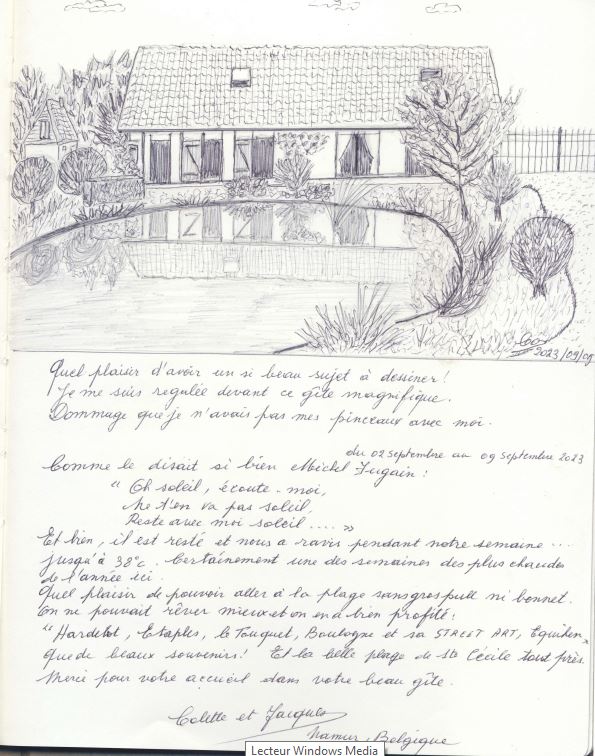 2023/09/09
Quel plaisir d'avoir un si beau sujet à dessiner!
Je me suis regulée devant ce gîte magnifique.
Dommage que je n'avais pas mes pinceaux avec moi.
du 02 septembre au 09 septembre 2023
Comme le disait si bien Michel Fugain:
" Oh soleil, écoute-moi,
Ne t'en va pas soleil,
Reste avec moi soleil .... "
Et bien, il est resté et nous a ravis pendant notre semaine ...
jusqu'à 38°c. Certainement une des semaines des plus chaudes
de l'année ici.
Quel plaisir de pouvoir aller à la plage sans gros pull ni bonnet.
On ne pouvait rêver mieux et on en a bien profité!
" Hardelot, Etaples, le Touquet, Boulogne et sa STREET ART, Equihen "
Que de beaux souvenirs! Et la belle plage de Ste Cécile tout près.
Merci pour votre accueil dans votre beau gîte.
Colette et Jacques
Namur, Belgique
Lecteur Windows Media